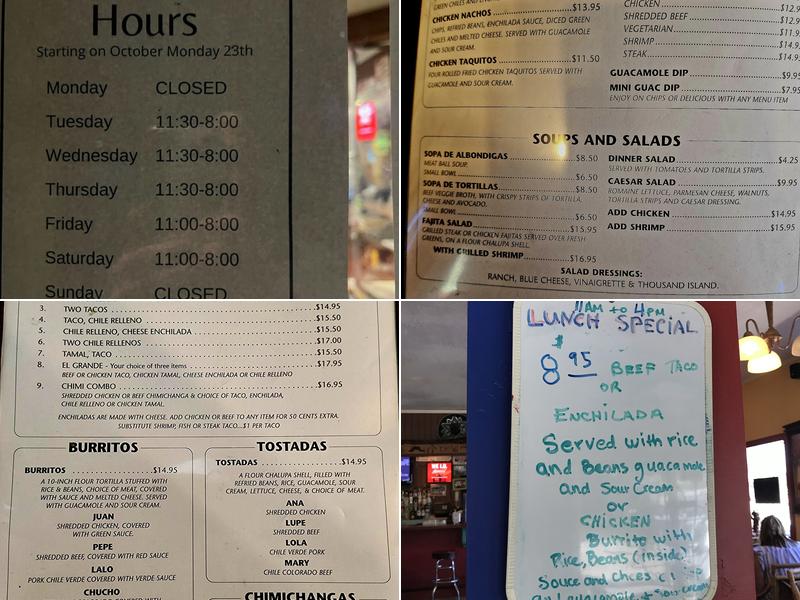 Hours
Starting on October Monday 23th
Monday CLOSED
Tuesday 11:30-8:00
Wednesday 11:30-8:00
Thursday 11:30-8:00
Friday 11:00-8:00
Saturday 11:00-8:00
Sunday CLOSED
CHICKEN NACHOS $13.95
CHIPS, REFRIED BEANS, ENCHILADA SAUCE, DICED GREEN
CHILES AND MELTED CHEESE. SERVED WITH GUACAMOLE
AND SOUR CREAM.
CHICKEN TAQUITOS $11.50
FOUR ROLLED FRIED CHICKEN TAQUITOS SERVED WITH
GUACAMOLE AND SOUR CREAM.
CHICKEN
SHREDDED BEEF $12.9
VEGETARIAN $11.9
SHRIMP $14.9
STEAK $14.9
GUACAMOLE DIP $9.95
MINI GUAC DIP $7.95
ENJOY ON CHIPS OR DELICIOUS WITH ANY MENU ITEM
SOUPS AND SALADS
SOPA DE ALBONDIGAS $8.50
MEAT BALL SOUP.
SMALL BOWL $6.50
SOPA DE TORTILLAS $8.50
BEEF VEGGIE BROTH, WITH CRISPY STRIPS OF TORTILLA,
CHEESE AND AVOCADO.
SMALL BOWL $6.50
FAJITA SALAD $15.95
GRILLED STEAK OR CHICKEN FAJITAS SERVED OVER FRESH
GREENS, ON A FLOUR CHALUPA SHELL.
WITH GRILLED SHRIMP $16.95
DINNER SALAD $4.25
SERVED WITH TOMATOES AND TORTILLA STRIPS.
CAESAR SALAD $9.95
ROMAINE LETTUCE, PARMESAN CHEESE, WALNUTS,
TORTILLA STRIPS AND CAESAR DRESSING.
ADD CHICKEN $14.95
ADD SHRIMP $15.95
SALAD DRESSINGS:
RANCH, BLUE CHEESE, VINAIGRETTE & THOUSAND ISLAND.
3. TWO TACOS $14.95
4. TACO, CHILE RELLENO $15.50
5. CHILE RELLENO, CHEESE ENCHILADA $15.50
6. TWO CHILE RELLENOS $17.00
7. TAMAL, TACO $15.50
8. EL GRANDE - Your choice of three items $17.95
BEEF OR CHICKEN TACO, CHICKEN TAMAL, CHEESE ENCHILADA OR CHILE RELLENO
9. CHIMI COMBO $16.95
SHREDDED CHICKEN OR BEEF CHIMICHANGA & CHOICE OF TACO, ENCHILADA,
CHILE RELLENO OR CHICKEN TAMAL.
ENCHILADAS ARE MADE WITH CHEESE. ADD CHICKEN OR BEEF TO ANY ITEM FOR 50 CENTS EXTRA.
SUBSTITUTE SHRIMP, FISH OR STEAK TACO...$1 PER TACO
BURRITOS
BURRITOS $14.95
A 10-INCH FLOUR TORTILLA STUFFED WITH
RICE & BEANS, CHOICE OF MEAT, COVERED
WITH SAUCE AND MELTED CHEESE. SERVED
WITH GUACAMOLE AND SOUR CREAM.
JUAN
SHREDDED CHICKEN, COVERED
WITH GREEN SAUCE.
PEPE
SHREDDED BEEF, COVERED WITH RED SAUCE
LALO
PORK CHILE VERDE COVERED WITH VERDE SAUCE
CHUCHO
TOSTADAS
TOSTADAS $14.95
A FLOUR CHALUPA SHELL, FILLED WITH
REFRIED BEANS, RICE, GUACAMOLE, SOUR
CREAM, LETTUCE, CHEESE, & CHOICE OF MEAT.
ANA
SHREDDED CHICKEN
LUPE
SHREDDED BEEF
LOLA
CHILE VERDE PORK
MARY
CHILE COLORADO BEEF
CHIMICHANGAS
11AM to 4PM
LUNCH SPECIAL
$8.95 BEEF TACO
OR
ENCHILADA
Served with rice
and Beans guacamole
and Sour Cream
or
CHICKEN
Burrito with
Rice, Beans (inside)
Sauce and